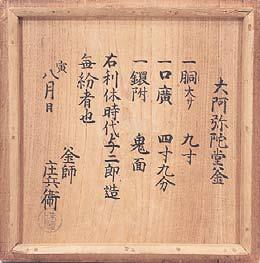 大阿弥陀堂釜
一胴大サ 九寸
一口廣 四寸九分
一鐶附 鬼面
右利休時代与二郎造
毎紛者也
寅
八月日
釜師
庄兵衛